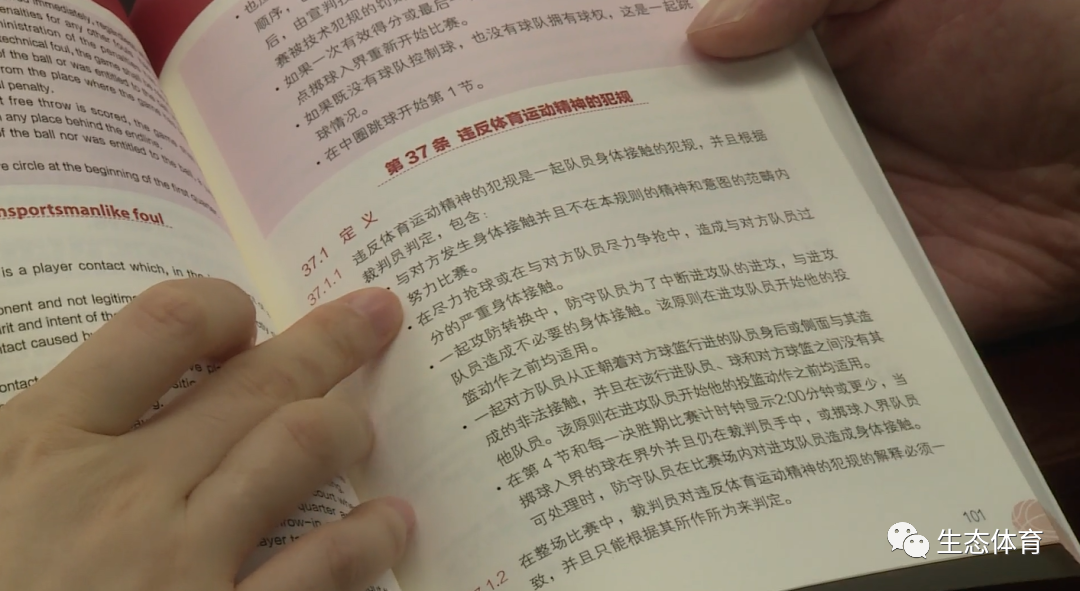 d immediately, regardless
enalties for any other
ministration of the
technical foul, the game shall
of the ball or was entitled to the
from the place where the game
l penalty.
t free throw is scored, the game
any place behind the endline.
of the ball nor was entitled to the ball,
e circle at the beginning of the first quarter
nsportsmanlike foul
is a player contact which, in the
onent and not legitim
irit and intent of the
ntact caused by
contact
position
quarter
row-in
layer to
顺序，
后，由宣判技
赛被技术犯规的罚则
• 如果一次有效得分或最后
点掷球入界重新开始比赛。
• 如果既没有球队控制球，也没有球队拥有球权，这是一起跳
球情况。
• 在中圈跳球开始第 1 节。
第 37 条 违反体育运动精神的犯规
37.1 定 义
37.1.1 违反体育运动精神的犯规是一起队员身体接触的犯规，并且根据
裁判员判定，包含：
• 与对方发生身体接触并且不在本规则的精神和意图的范畴内
努力比赛。
• 在尽力抢球或在与对方队员尽力争抢中，造成与对方队员过
分的严重身体接触。
• 一起攻防转换中，防守队员为了中断进攻队的进攻，与进攻
队员造成不必要的身体接触。该原则在进攻队员开始他的投
篮动作之前均适用。
• 一起对方队员从正朝着对方球篮行进的队员身后或侧面与其造
成的非法接触，并且在该行进队员、球和对方球篮之间没有其
他队员。该原则在进攻队员开始他的投篮动作之前均适用。
• 在第 4 节和每一决胜期比赛计时钟显示2:00分钟或更少，当
掷球入界的球在界外并且仍在裁判员手中，或掷球入界队员
可处理时，防守队员在比赛场内对进攻队员造成身体接触。
7.1.2 在整场比赛中，裁判员对违反体育运动精神的犯规的解释必须一
致，并且只能根据其所作所为来判定。
101
生态体育